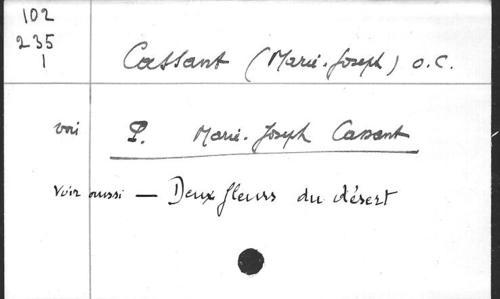 102
235
1
Cassant (Marie-Joseph) O.C.
voir P. Marie-Joseph Cassant
Voir aussi — Deux fleurs du désert